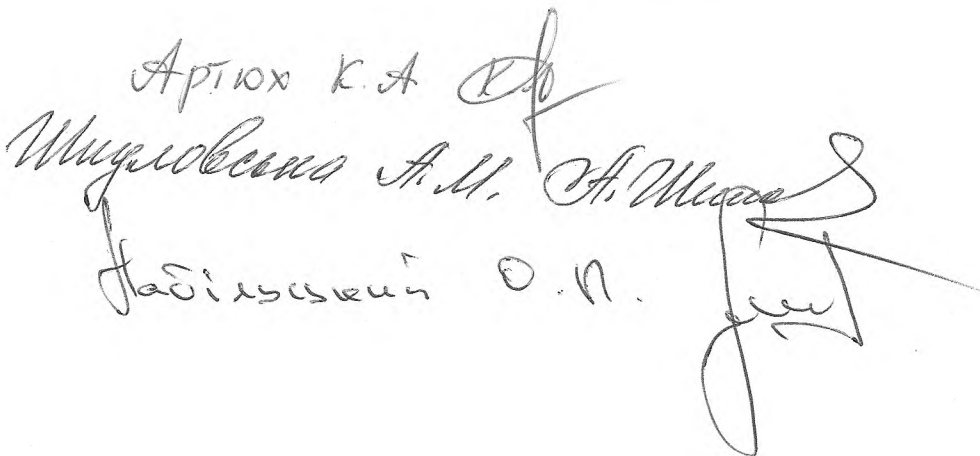 Артюх К.А
Шидловська А.М. А. Шид
Набільський О.П.